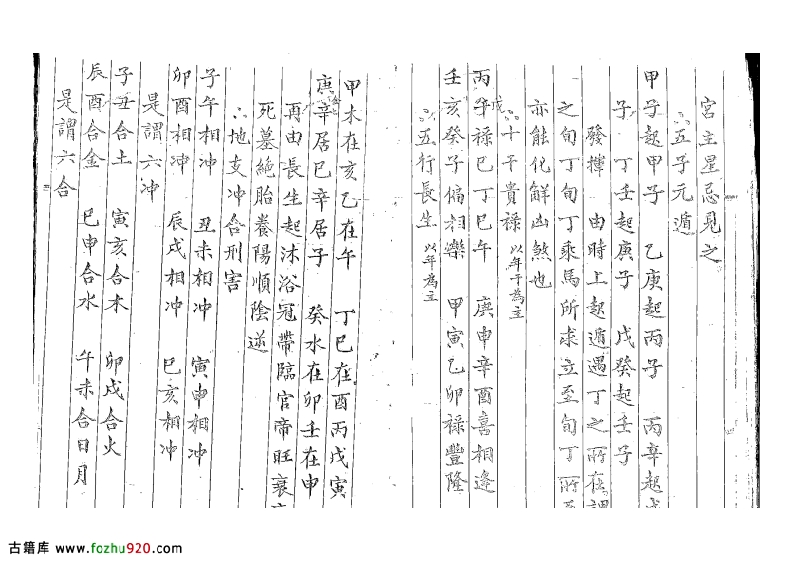 宮主星忌見之
∴五子元遁
甲子起甲子　乙庚起丙子　丙辛起戊
子　丁壬起庚子　戊癸起壬子
發揮　由時上起遁遇丁之所在謂
之旬丁旬丁乘馬所求立至旬丁所
亦能化解凶煞也
∴十干貴祿　以年干為主
丙戊午祿巳丁巳午　庚申辛酉喜相逢
壬亥癸子偏相樂　甲寅乙卯祿豐隆
∴五行長生　以年為主
甲木在亥乙在午　丁巳在酉丙戊寅
庚金辛居巳辛居子　癸水在卯壬在申
再由長生起沐浴冠帶臨官帝旺衰
死墓絕胎養陽順陰逆
∴地支冲合刑害
子午相冲　丑未相冲　寅申相冲
卯酉相冲　辰戌相冲　巳亥相冲
是謂六冲
子丑合土　寅亥合木　卯戌合火
辰酉合金　巳申合水　午未合日月
是謂六合
古籍库 www.fozhu920.com